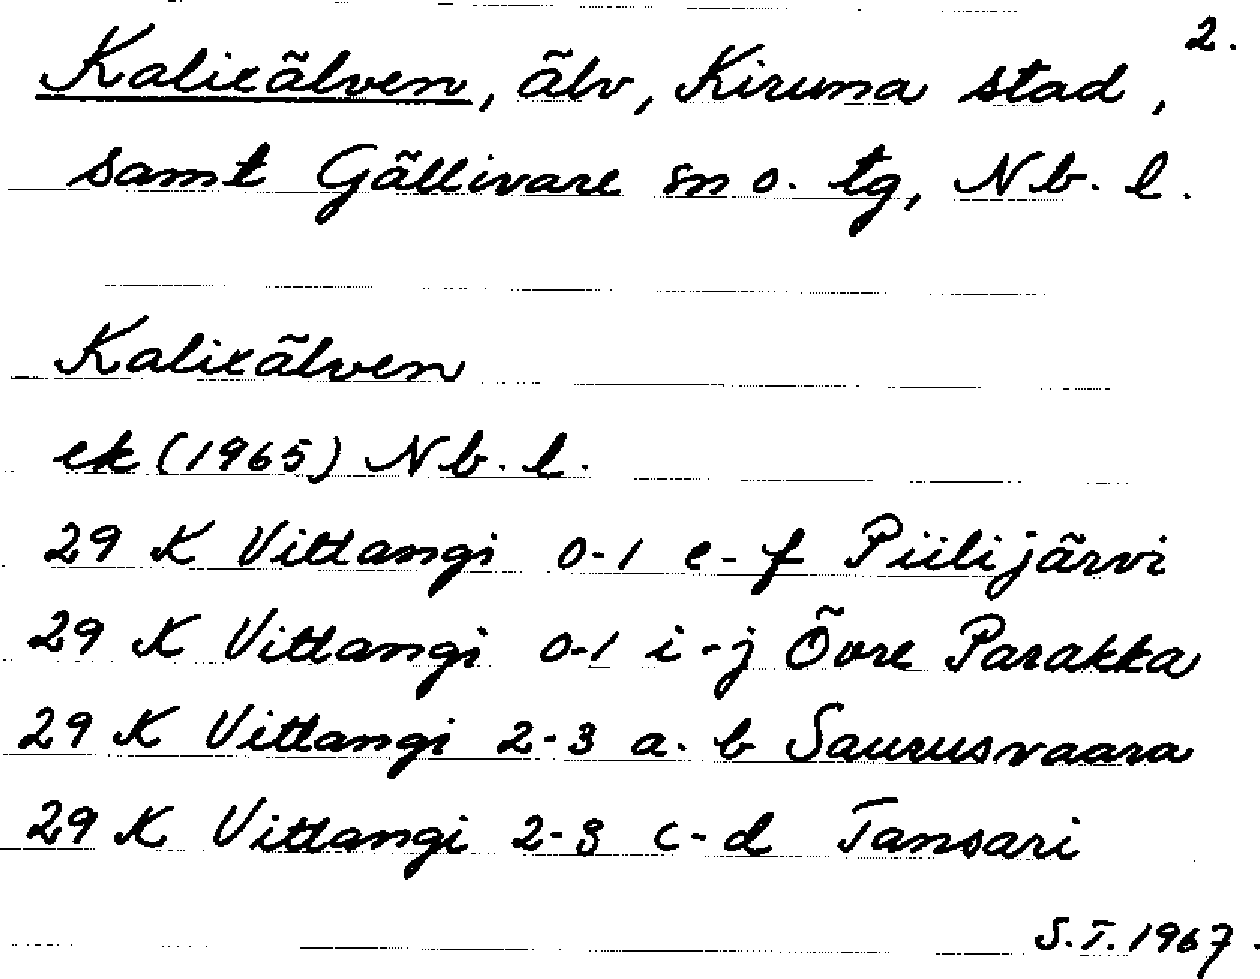 2.
Kalixälven, älv, Kiruna stad,
samt Gällivare sn o. tg, Nb. l.
Kalixälven
ek (1965) Nb. l.
29 K Vittangi 0-1 e-f Piilijärvi
29 K Vittangi 0-1 i-j Övre Parakka
29 K Vittangi 2-3 a-b Saurusvaara
29 K Vittangi 2-3 c-d Tansari
S.T. 1967.